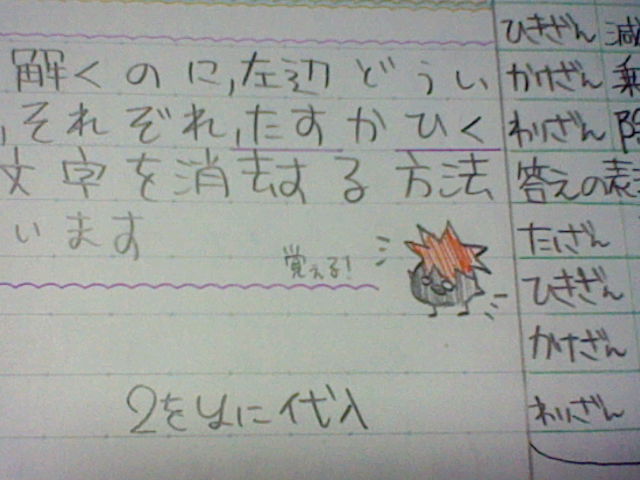 解くのに,左辺どうい
,それぞれ,たすかひく
文字を消去する方法
います
覚える!
2をyに代入
ひきざん 減
かけざん 乗
わりざん 除
答えの表
たしざん
ひきざん
かけざん
わりざん